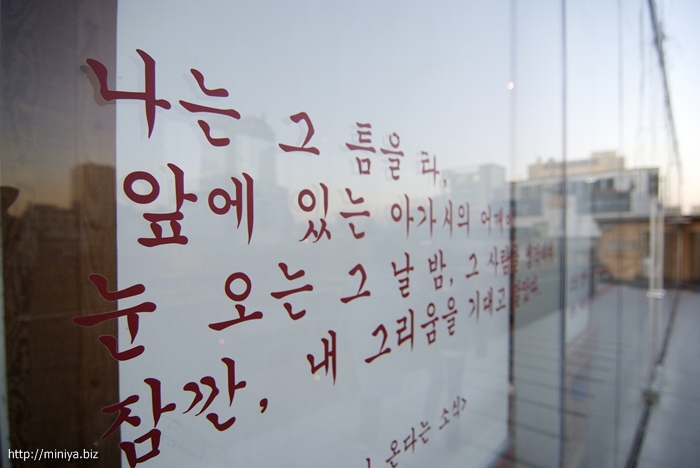 나는 그 틈을 타,
앞에 있는 아가씨의 어깨에
눈 오는 그 날 밤, 그 사람을 생각하며
잠깐, 내 그리움을 기대고 말았다.
온다는 소식>
http://miniya.biz